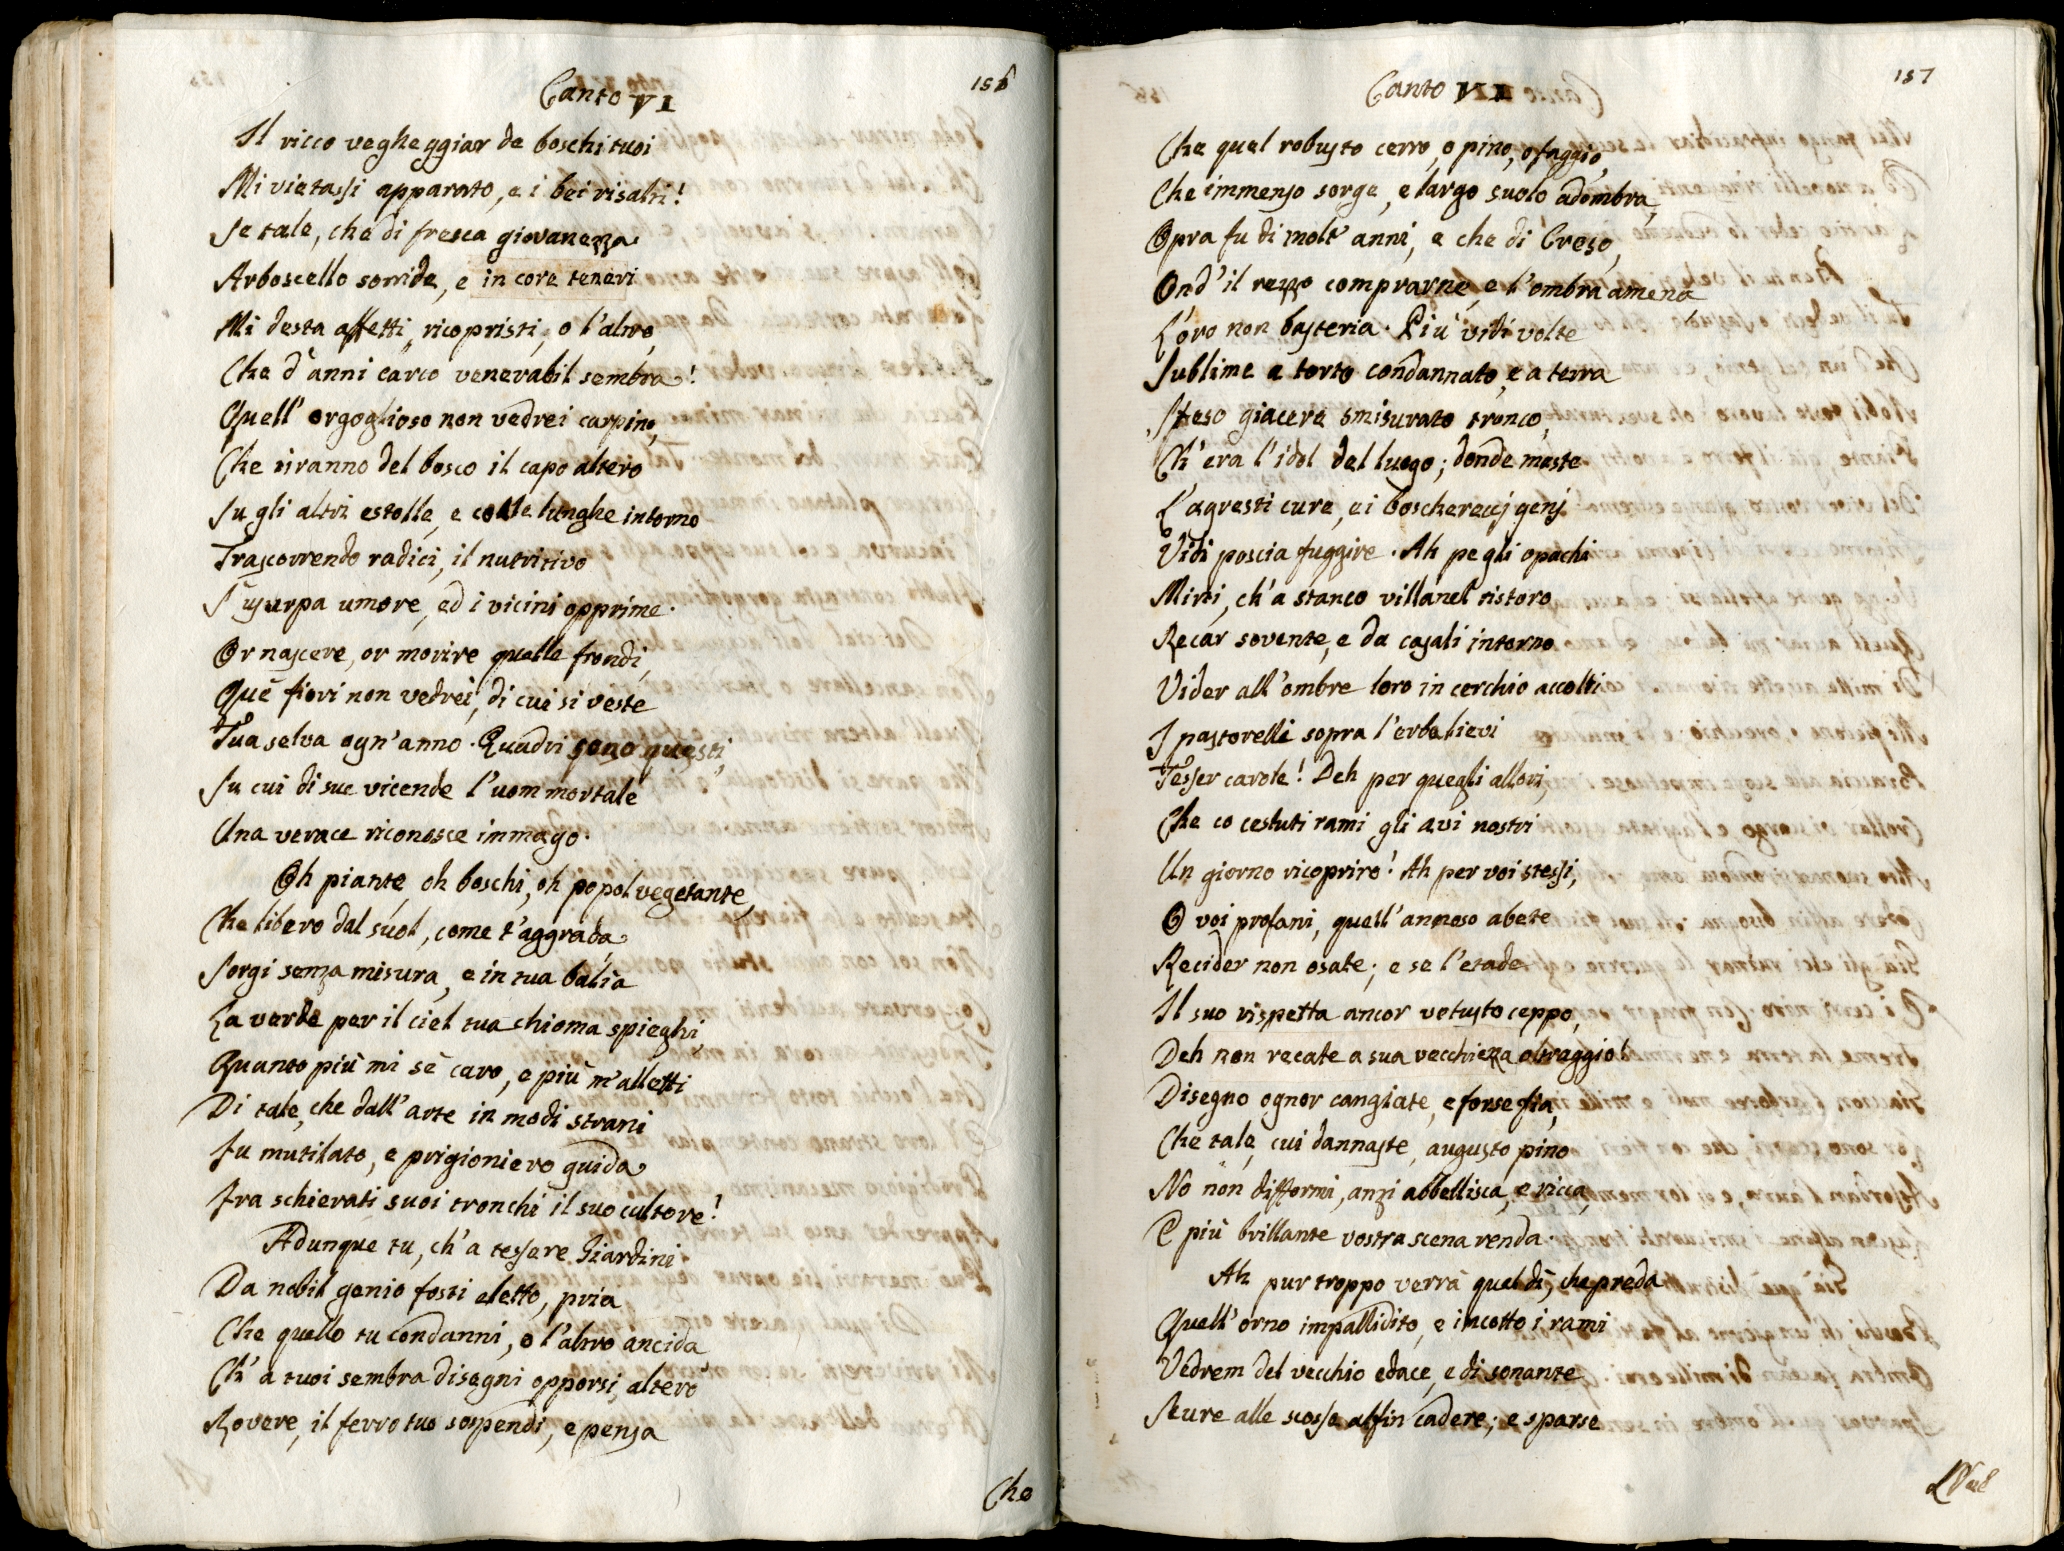 Canto VI
156
Il ricco vegheggiar de boschi tuoi
Mi vietassi apparato, e i bei risalti!
Se tale, che di fresca giovanezza
Arboscello sorride, e in core teneri
Mi desta affetti, ricopristi, o l'altro,
Che d'anni carco venerabil sembra!
Quell' orgoglioso non vedrei carpino,
Che tiranno del bosco il capo altero
Su gli altri estolle, e colle lunghe intorno
Trascorrendo radici, il nutritivo
S'usurpa umore, ed i vicini opprime.
Or nascere, or morire quelle frondi,
Què fiori non vedrei, di cui si veste
Tua selva ogn'anno. Quadri sono questi,
Su cui di sue vicende l'uom mortale
Una verace riconosce immago.
Oh piante, oh boschi, oh popol vegetante,
Che libero dal suol, come t'aggrada,
Sorgi senza misura, e in tua balìa
La verde per il ciel tua chioma spieghi,
Quanto più mi sè caro, e più m'alletti
Di tale, che dall'arte in modi strani
Fu mutilato, e prigioniero guida
Fra schierati suoi tronchi il suo cultore!
Adunque tu, ch'a tessere Giardini
Da nobil genio fosti eletto, pria
Che quello tu condanni, o l'altro ancida,
Ch'a tuoi sembra disegni opporsi, altero
Rovere, il ferro tuo sospendi, e pensa
Che
Canto VI
157
Che quel robusto cerro, o pino, o faggio,
Che immenso sorge, e largo suolo adombra,
Opra fu di molt' anni, e che di Creso,
Ond'il rezzo comprarne, e l'ombra amena
L'oro non basteria. Più vidi volte
Sublime a torto condannato, e a terra
Steso giacere smisurato tronco,
Ch'era l'idol del luogo; donde meste
L'agresti cure, ei boscherecj genj
Vidi poscia fuggire. Ah pe gli opachi
Mirti, ch'a stanco villanel ristoro
Recar sovente, e da casali intorno
Vider all'ombre loro in cerchio accolti
I pastorelli sopra l'erba lievi
Tesser carole! Deh per quegli allori,
Che co cestuti rami gli avi nostri
Un giorno ricopriro! Ah per voi stessi,
O voi profani, quell'annoso abete
Recider non osate; e se l'etade
Il suo rispetta ancor vetusto ceppo,
Deh non recate a sua vecchiezza oltraggio!
Disegno ognor cangiate, e forse fia,
Che tale, cui dannaste, augusto pino
No non difformi, anzi abbellisca, e ricca,
E più brillante vostra scena renda.
Ah pur troppo verrà quel dì, che preda
Quell'orno impallidito, e incotto i rami
Vedrem del vecchio edace, e di sonante
Scure alle scosse alfin cadere; e sparse